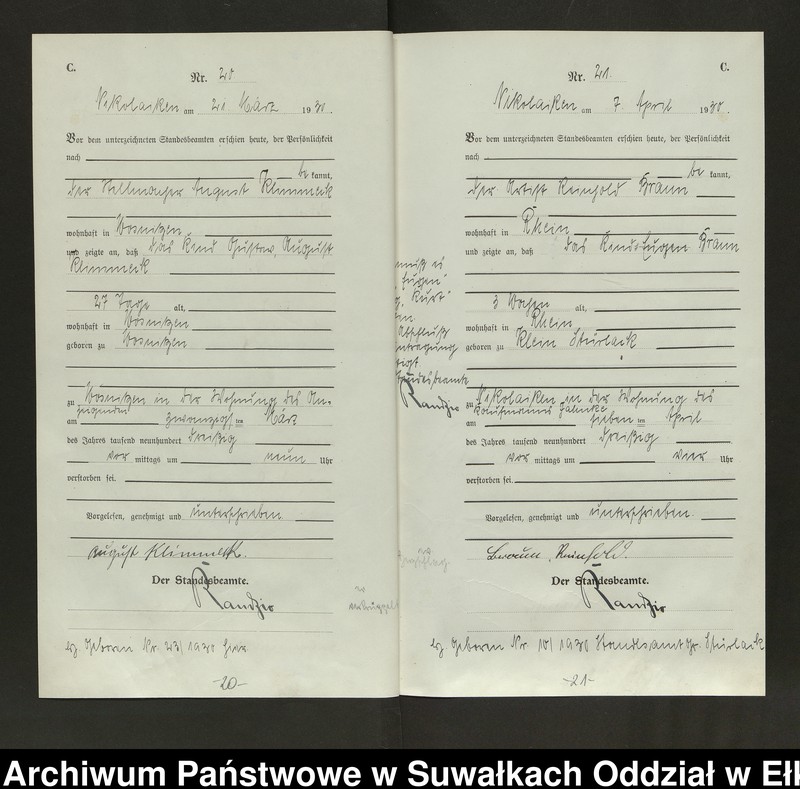 C.
Nr. 20
Nikolaiken am 21. März 1930.
Vor dem unterzeichneten Standesbeamten erschien heute, der Persönlichkeit
nach
be kannt,
der Stellmacher August Klimmeck
wohnhaft in Wosnitzen
und zeigte an, daß das Kind Gustav, August
Klimmeck
27 Tage alt,
wohnhaft in Wosnitzen
geboren zu Wosnitzen
zu Wosnitzen in der Wohnung des An-
zeigenden
am zwanzigsten März
des Jahres tausend neunhundert dreißig
vor mittags um neun Uhr
verstorben sei.
Vorgelesen, genehmigt und unterschrieben
August Klimmeck.
Der Standesbeamte.
Randzio
Geboren Nr. 23/1930 hier
-20-
muß es
"Eugen"
Kurt"
Abschluß
ntragung
andesbeamte
Randzio
C.
Nr. 21.
Nikolaiken am 7. April 1930.
Vor dem unterzeichneten Standesbeamten erschien heute, der Persönlichkeit
nach
be kannt,
der Artist Reinhold Braun
wohnhaft in Rhein
und zeigte an, daß das Kind Eugen Braun
3 Wochen alt,
wohnhaft in Rhein
geboren zu Klein Stürlack
zu Nikolaiken in der Wohnung des
Kaufmanns
am sieben ten April
des Jahres tausend neunhundert dreißig
vor mittags um vier Uhr
verstorben sei.
Vorgelesen, genehmigt und unterschrieben.
Braun, Reinhold.
Der Standesbeamte.
Randzio
Geboren Nr. 10/1930 Standesamt Gr. Stürlack
-21-
Archiwum Państwowe w Suwałkach Oddział w Ełk